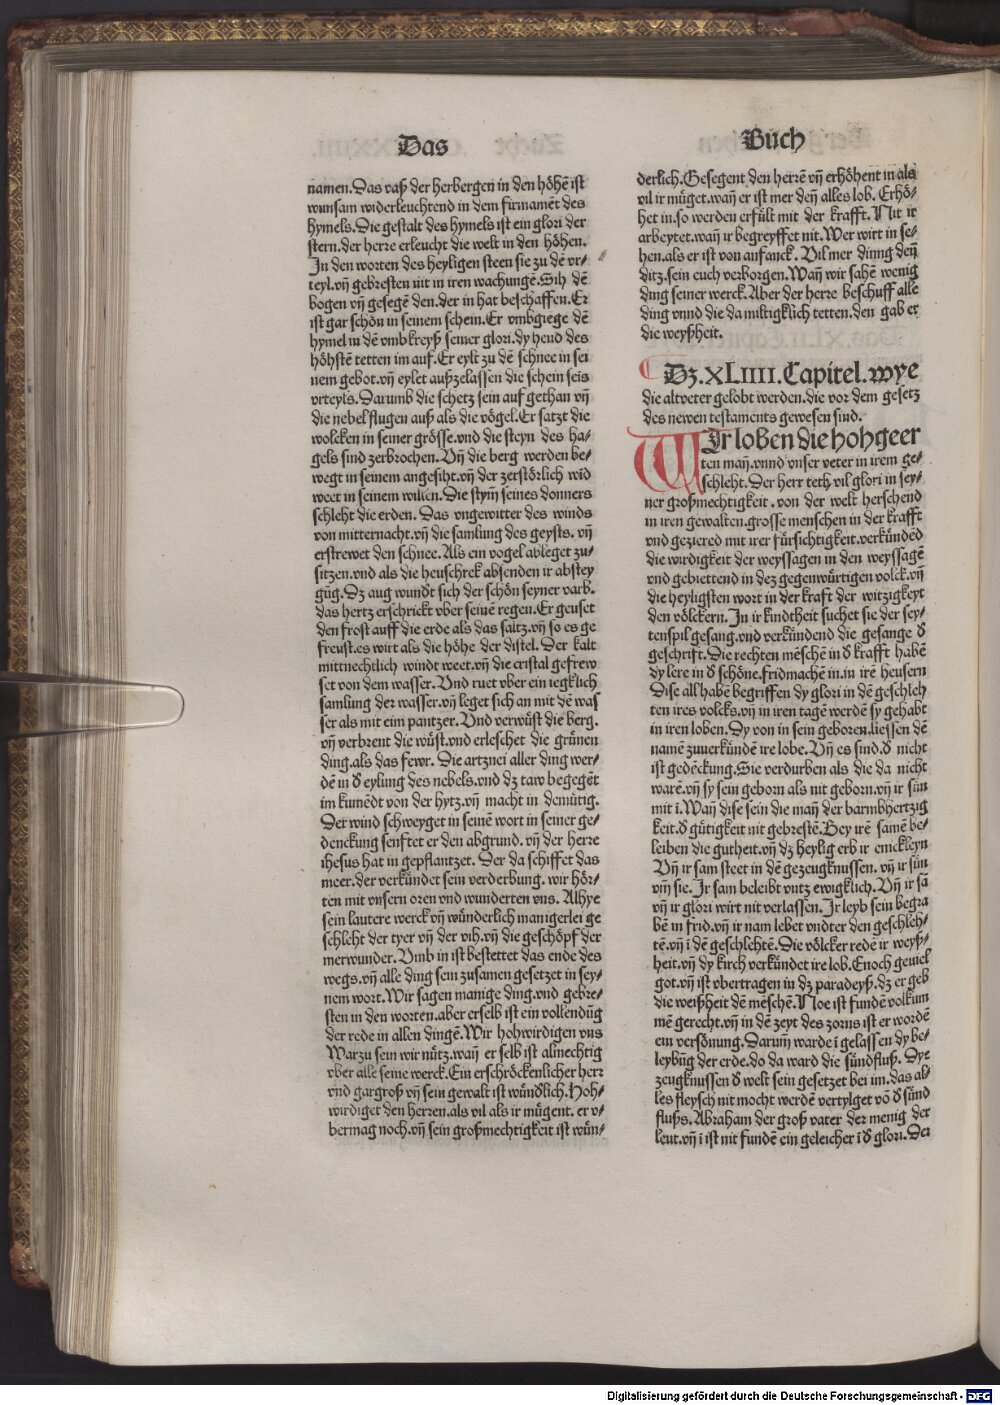 Das
Buch
namen. Das vaß der herbergen in den höhē ist
wunsam widerleuchtend in dem firmamēt des
hymels. Die gestalt des hymels ist ein glori der
stern. der herre erleucht die welt in den höhen.
In den worten des heyligen steen sie zu dē vr-
teyl. vñ gebresten nit in iren wachungē. Sih dē
bogen vñ gesegē den. der in hat beschaffen. Er
ist gar schön in seinem schein. Er vmbgiege dē
hymel in dē vmbkreyß seiner glori. dy hend des
höhstē tetten im auf. Er eylt zu dē schnee in sei
nem gebot. vñ eylet außzelassen die schein seis
vrteyls. Darumb die schetz sein auf gethan vñ
die nebel flugen auß als die vögel. Er satzt die
wolcken in seiner grösse. vnd die steyn des ha-
gels sind zerbrochen. Vñ die berg werden be-
wegt in seinem angesiht. vñ der zerstörlich wīd
weet in seinem willen. Die stym̄ seines donners
schleht die erden. Das vngewitter des winds
von mitternacht. vñ die samlung des geysts. vñ
erstrewet den schnee. Als ein vogel ableget zu-
sitzen. vnd als die heuschrek absenden ir abstey
gūg. Dz aug wundt sich der schön seyner varb.
das hertz erschrickt vber seinē regen. Er geuset
den frost auff die erde als das saltz. vñ so es ge
freust. es wirt als die höhe der distel. Der kalt
mittnechtlich windt weet. vñ die cristal gefrew
set von dem wasser. Vnd ruet vber ein iegklich
samlung der wasser. vñ leget sich an mit dē was
ser als mit eim pantzer. Vnd verwüst die berg.
vñ verbrent die wüst. vnd erleschet die grünen
ding. als das fewr. Die artznei aller ding wer-
dē in d eylung des nebels. vnd dz taw begegēt
im kumēdt von der hytz. vñ macht in demütig.
Der wind schweyget in seinē wort in seiner ge-
denckung senftet er den abgrund. vñ der herre
ihesus hat in gepflantzet. Der da schiffet das
meer. der verkündet sein verderbung. wir hör-
ten mit vnsern oren vnd wunderten vns. Alhye
sein lautere werck vñ wünderlich manigerlei ge
schleht der tyer vñ der vih. vñ die geschöpf der
merwunder. Vmb in ist bestettet das ende des
wegs. vñ alle ding sein zusamen gesetzet in sey-
nem wort. Wir sagen manige ding. vnd gebre-
sten in den worten. aber er selb ist ein vollendūg
der rede in allen dingē. Wir hohwirdigen vns
Warzu sein wir nütz. wañ er selb ist almechtig
vber alle seine werck. Ein erschröckenlicher herr
vnd gar groß vñ sein gewalt ist wündlich. Hoh-
wirdiget den herren. als vil als ir mügent. er v-
bermag noch. vñ sein großmechtigkeit ist wün-
derlich. Gesegent den herrē vñ erhöhent in als
vil ir müget. wañ er ist mer deñ alles lob. Erhö-
het in. so werden erfült mit der krafft. Nit ir
arbeytet. wañ ir begreyffet nit. Wer wirt in se-
hen. als er ist von anfanck. Vil mer dinng deñ
ditz. sein euch verborgen. Wañ wir sahē wenig
ding seiner werck. Aber der herre beschuff alle
ding vnnd die da miltigklich tetten. den gab er
die weyßheit.
Dz. XLIIII. Capitel. wye
die altveter gelobt werden. die vor dem gesetz
des newen testaments gewesen sind.
WIr loben die hohgeer
ten mañ. vnnd vnser veter in irem ge-
schleht. Der herr teth vil glori in sey-
ner großmechtigkeit. von der welt herschend
in iren gewalten. grosse menschen in der krafft
vnd geziered mit irer fürsichtigkeit. verkündēd
die wirdigkeit der weyssagen in den weyssagē
vnd gebiettend in dez gegenwürtigen volck. vñ
die heyligsten wort in der kraft der witzigkeyt
den völckern. In ir kindtheit suchet sie der sey-
tenspil gesang. vnd verkündend die gesange d
geschrift. Die rechten mēschē in d krafft habē
dy lere in d schöne. fridmachē in. in irē heusern
Dise all habē begriffen dy glori in dē geschleh
ten ires volcks. vñ in iren tagē werdē sy gehabt
in iren loben. Dy von in sein geboren. liessen dē
namē zuuerkündē ire lobe. Vñ es sind. d nicht
ist gedēckung. Sie verdurben als die da nicht
warē. vñ sy sein geborn als nit geborn. vñ ir sün
mit ī. Wañ dise sein die mañ der barmhertzig
keit. d gütigkeit nit gebrestē. Bey irē samē be-
leiben die gutheit. vñ dz heylig erb ir enickleyn
Vñ ir sam steet in dē gezeugknussen. vñ ir sün
vm̄ sie. Ir sam beleibt vntz ewigklich. Vñ ir sā
vñ ir glori wirt nit verlassen. Ir leyb sein begra
bē in frid. vñ ir nam lebet vndter den geschleh-
tē. vñ ī dē geschlehtē. Die völcker rede ir weyß-
heit. vñ dy kirch verkündet ire lob. Enoch geuiel
got. vñ ist vbertragen in dz paradeyß. dz er geb
die weißheit dē mēschē. Noe ist fundē volkum
mē gerecht. vñ in dē zeyt des zorns ist er wordē
ein versönung. Darum̄ warde ī gelassen dy be-
leybūg der erde. do da ward die sündfluß. Dye
zeugknussen d welt sein gesetzet bei im. das al-
les fleysch nit mocht werdē vertylget vō d sünd
flußs. Abraham der groß vater der menig der
leut. vñ ī ist nit fundē ein geleicher ī d glori. Der
Digitalisierung gefördert durch die Deutsche Forschungsgemeinschaft - DFG